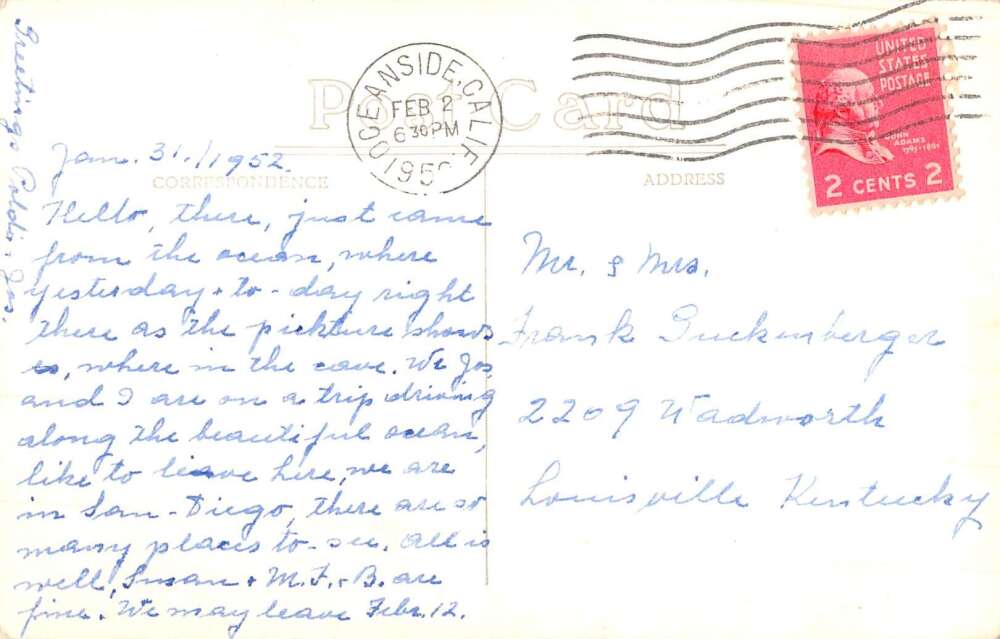 Post Card
OCEANSIDE, CALIF.
FEB 2
6 30 PM
195
UNITED
STATES
POSTAGE
JOHN
ADAMS
1797-1801
2 CENTS 2
CORRESPONDENCE
ADDRESS
Jan. 31./1952.
Hello, there, just came
from the ocean, where
yesterday + to-day right
there as the pickture shows
, where in the cave. We Jos,
and I are on a trip driving
along the beautiful ocean,
like to leave here, we are
in San-Diego, there are so
many places to-see. All is
well, Susan + M.F.+ B. are
fine. We may leave Febr. 12.
Greetings Poldi + Jos.
Mr. & Mrs.
Frank Guckenberger
2209 Wadworth
Louisville Kentucky